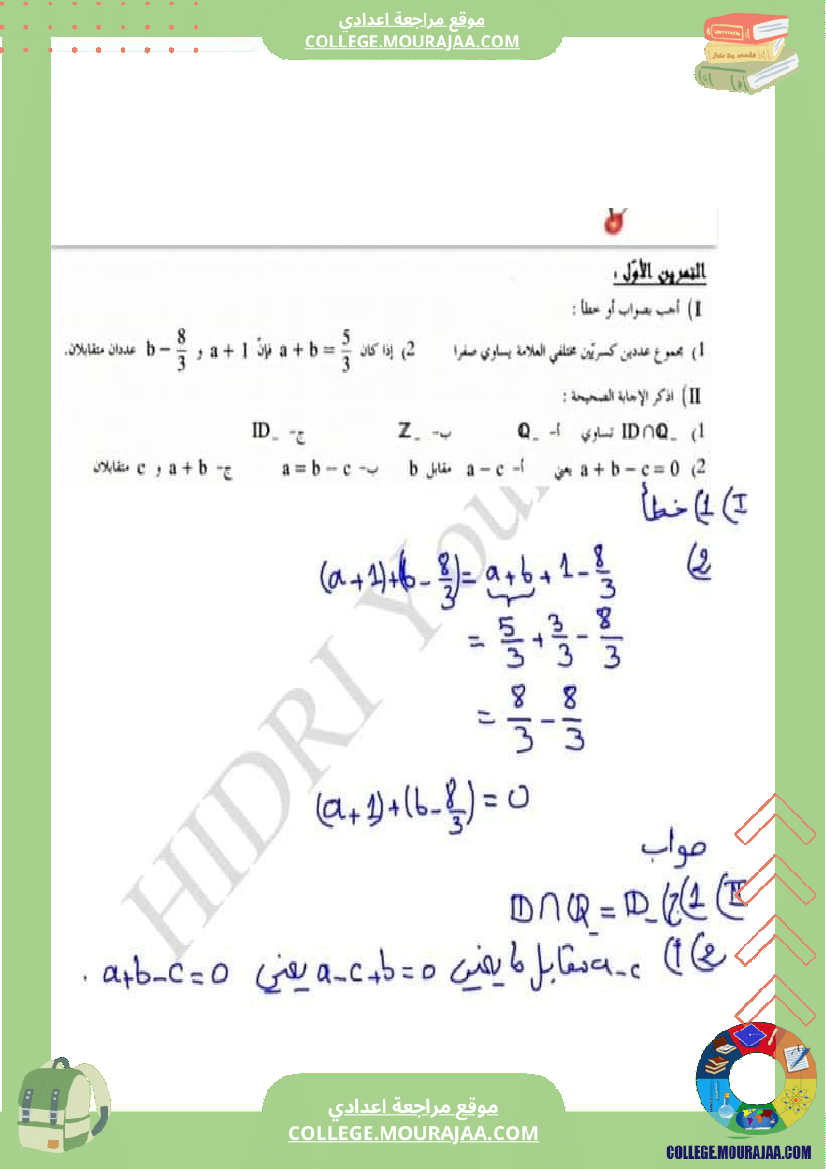 موقع مراجعة اعدادي
COLLEGE.MOURAJAA.COM
التمرين الأوّل :
I) أجب بصواب أو خطأ :
1) مجموع عددين كسريّين مختلفي العلامة يساوي صفرا 2) إذا كان a + b = 5/3 فإنّ a + 1 و b − 8/3 عددان متقابلان.
II) اذكر الإجابة الصحيحة :
1) ID∩Q_ تساوي أ- Q_ ب- Z_ ج- ID_
2) a + b − c = 0 يعني أ- a − c مقابل b ب- a = b − c ج- a + b و c متقابلان
I) 1) خطأ
2) (a+1)+(b-8/3) = a+b+1-8/3
= 5/3 + 3/3 - 8/3
= 8/3 - 8/3
(a+1)+(b-8/3) = 0
صواب
II) 1) ج) ID∩Q_ = ID_
2) أ) a-c مقابل b يعني a-c+b=0 يعني a+b-c=0 .
HIDRI You
موقع مراجعة اعدادي
COLLEGE.MOURAJAA.COM
COLLEGE.MOURAJAA.COM